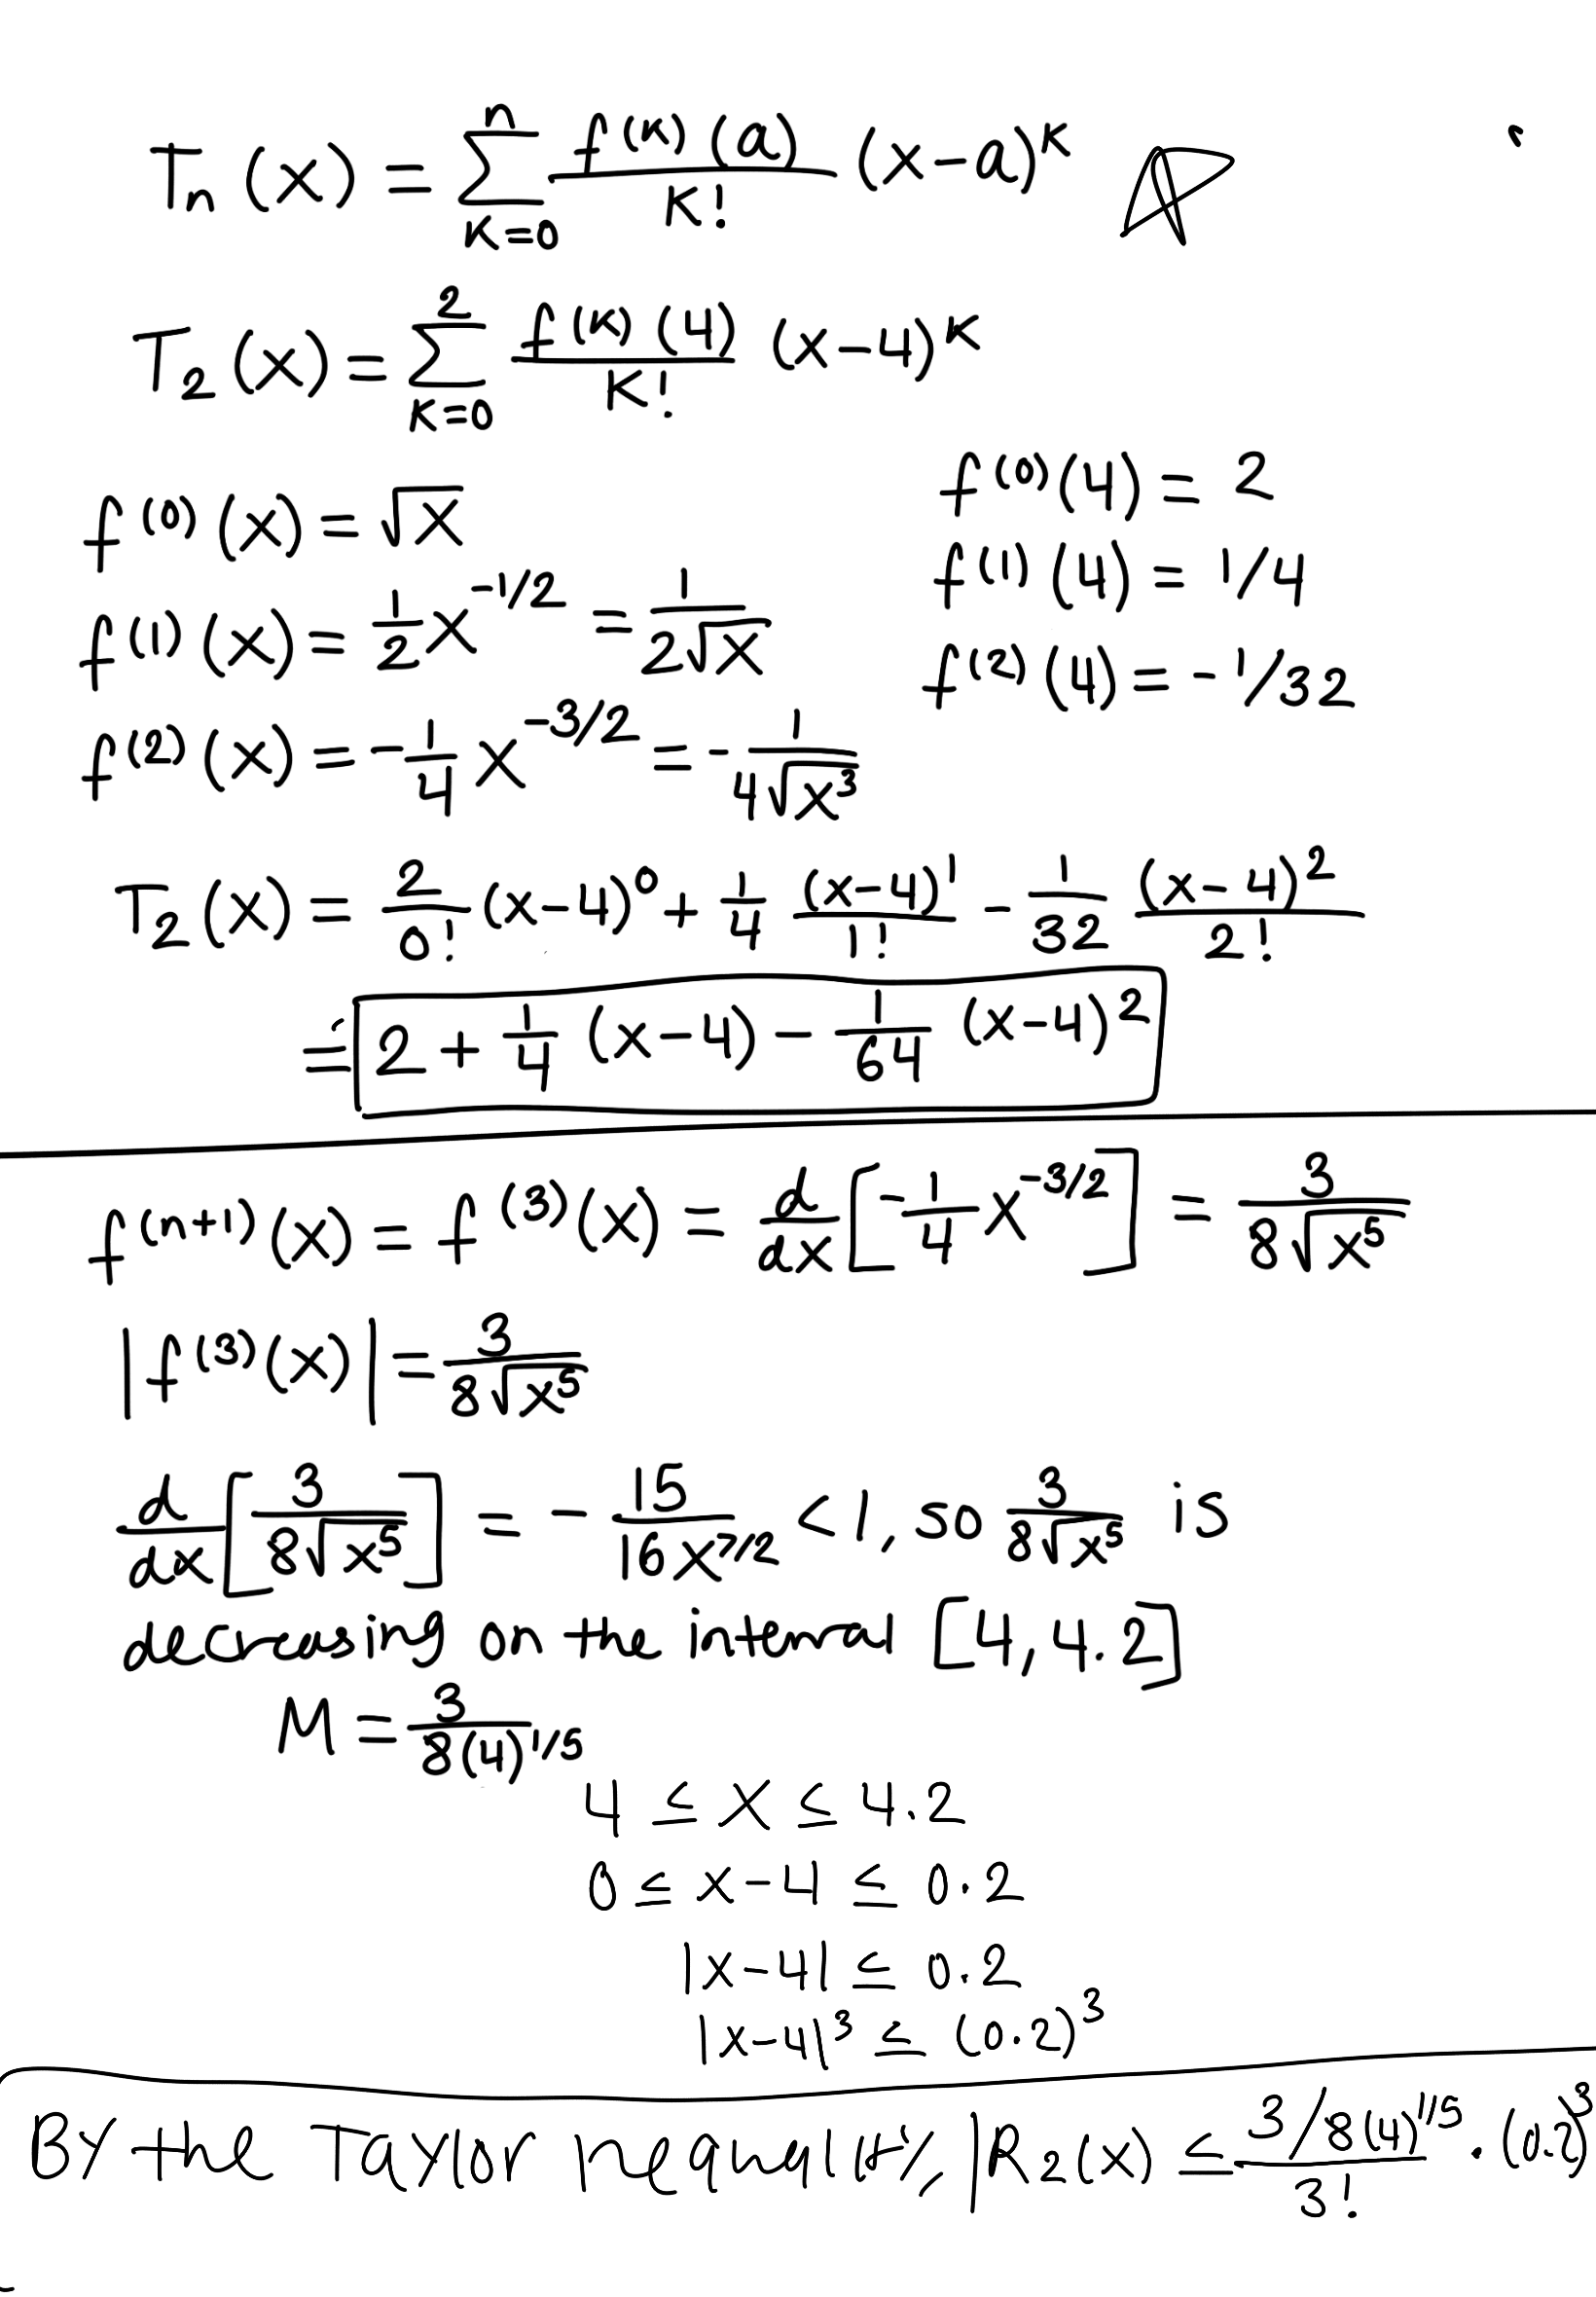 Tₙ(x) = Σ_{k=0}^{n} f^(k)(a)/k! (x-a)^k
T₂(x) = Σ_{k=0}^{2} f^(k)(4)/k! (x-4)^k
f^(0)(x) = √x
f^(0)(4) = 2
f^(1)(x) = 1/2 x^(-1/2) = 1/(2√x)
f^(1)(4) = 1/4
f^(2)(x) = -1/4 x^(-3/2) = -1/(4√x³)
f^(2)(4) = -1/32
T₂(x) = 2/0! (x-4)⁰ + 1/4 (x-4)¹/1! - 1/32 (x-4)²/2!
= 2 + 1/4 (x-4) - 1/64 (x-4)²
f^(n+1)(x) = f^(3)(x) = d/dx [-1/4 x^(-3/2)] = 3/(8√x⁵)
|f^(3)(x)| = 3/(8√x⁵)
d/dx [3/(8√x⁵)] = -15/(16x^(7/2)) < 1, so 3/(8√x⁵) is
decreasing on the interval [4, 4.2]
M = 3/(8(4)^(1/5))
4 ≤ x ≤ 4.2
0 ≤ x-4 ≤ 0.2
|x-4| ≤ 0.2
|x-4|³ ≤ (0.2)³
BY the Taylor Inequality, |R₂(x) ≤ (3/8(4)^(1/5))/3! · (0.2)³